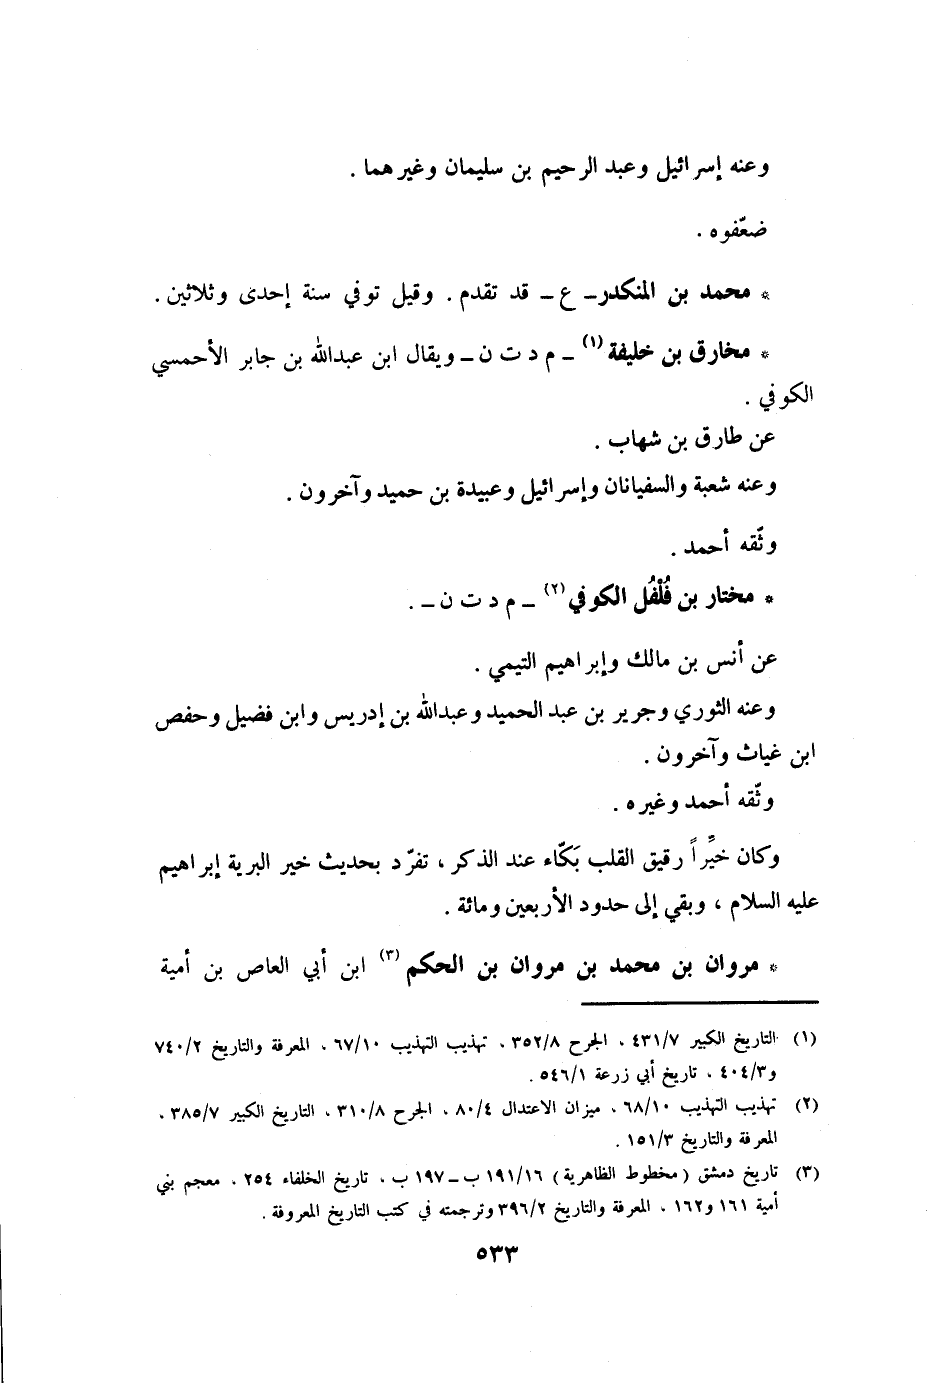 وعنه إسرائيل وعبد الرحيم بن سليمان وغيرهما .
ضعّفوه .
* محمد بن المنكدر ـ ع ـ قد تقدم . وقيل توفي سنة إحدى وثلاثين .
* مخارق بن خليفة (١) ـ م د ت ن ـ ويقال ابن عبدالله بن جابر الأحمسي
الكوفي .
عن طارق بن شهاب .
وعنه شعبة والسفيانان وإسرائيل وعبيدة بن حميد وآخرون .
وثّقه أحمد .
* مختار بن فُلْفُل الكوفي (٢) ـ م د ت ن ـ .
عن أنس بن مالك وإبراهيم التيمي .
وعنه الثوري وجرير بن عبد الحميد وعبدالله بن إدريس وابن فضيل وحفص
ابن غياث وآخرون .
وثّقه أحمد وغيره .
وكان خيِّراً رقيق القلب بَكّاء عند الذكر ، تفرّد بحديث خير البرية إبراهيم
عليه السلام ، وبقي إلى حدود الأربعين ومائة .
* مروان بن محمد بن مروان بن الحكم (٣) ابن أبي العاص بن أمية
(١) التاريخ الكبير ٤٣١/٧ ، الجرح ٣٥٢/٨ ، تهذيب التهذيب ٦٧/١٠ ، المعرفة والتاريخ ٧٤٠/٢
و٤٠٤/٣ ، تاريخ أبي زرعة ٥٤٦/١ .
(٢) تهذيب التهذيب ٦٨/١٠ ، ميزان الاعتدال ٨٠/٤ ، الجرح ٣١٠/٨ ، التاريخ الكبير ٣٨٥/٧ ،
المعرفة والتاريخ ١٥١/٣ .
(٣) تاريخ دمشق ( مخطوط الظاهرية ) ١٩١/١٦ ب ـ ١٩٧ ب ، تاريخ الخلفاء ٢٥٤ ، معجم بني
أمية ١٦١ و١٦٢ ، المعرفة والتاريخ ٣٩٦/٢ وترجمته في كتب التاريخ المعروفة .
٥٣٣